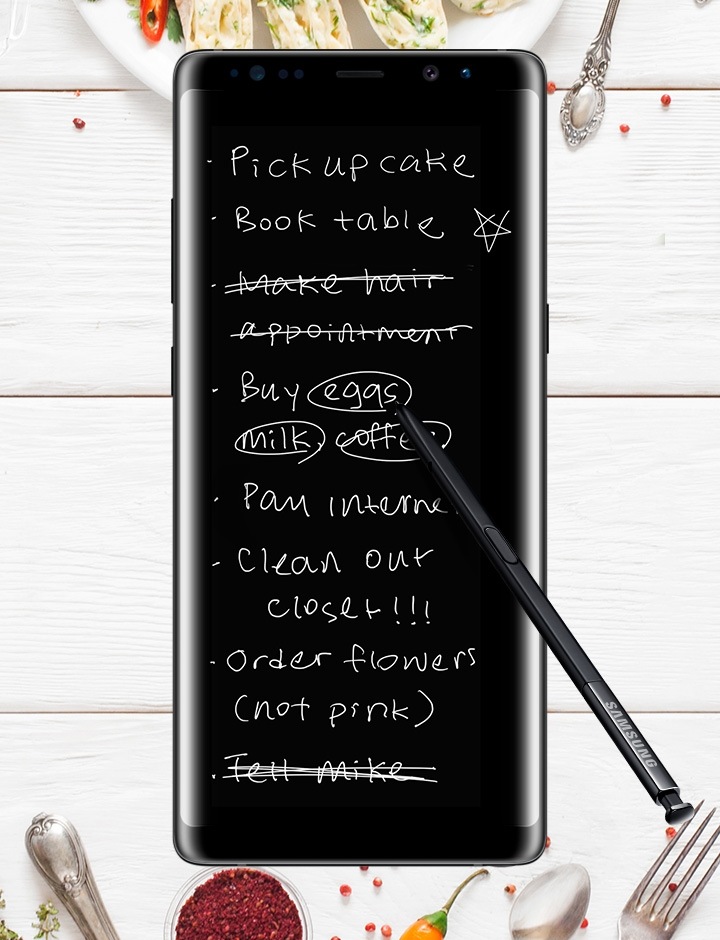 - Pick up cake
- Book table ☆
- Make hair
appointment
- Buy eggs,
milk, coffee
- Pay interne
- Clean out
closet!!!
- Order flowers
(not pink)
- Tell Mike
SAMSUNG